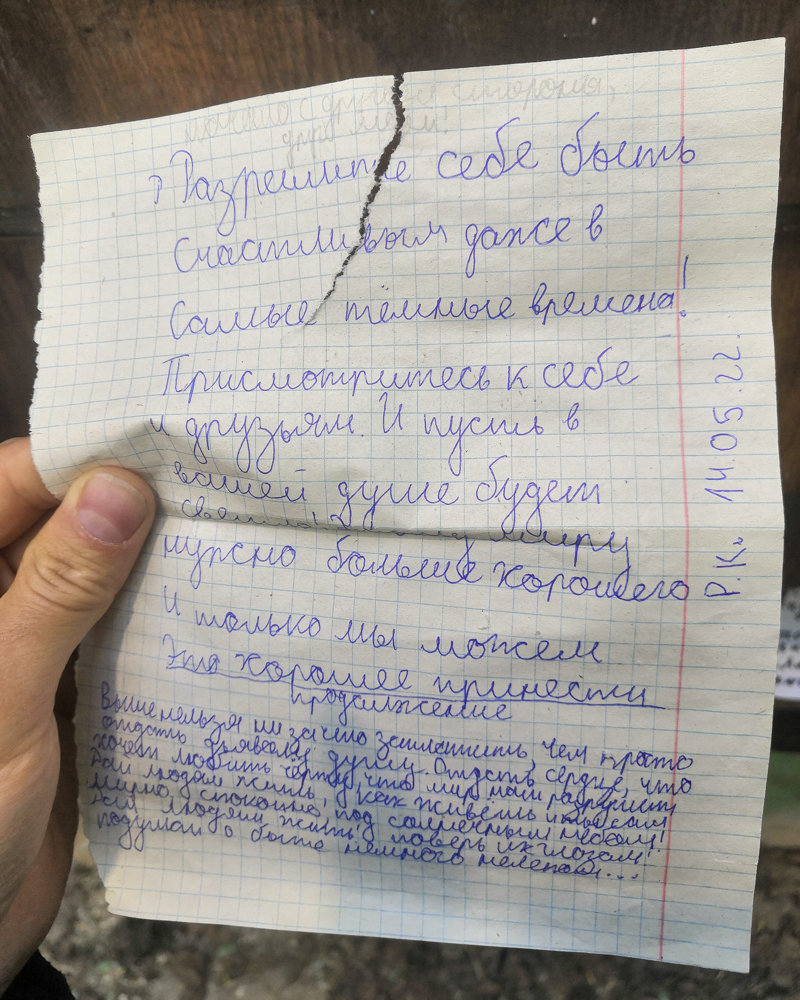 начало с другой стороны,
Разрешите себе быть
счастливым даже в
самые тёмные времена!
Присмотритесь к себе
и друзьям. И пусть в
вашей душе будет
миру
нужно больше хорошего
И только мы можем
Это хорошее принести
продолжение
Выше нельзя ни за что заплатить, чем просто
отдать душу. Отдать сердце, что
хочет любить что мир наш
Дай людям жить, как живёшь ты сам
Мирно, спокойно, под солнечным небом!
Дай людям жить, поверь их глазам!
подумай о быте немного нелепом...
Р.К. 14.05.22.